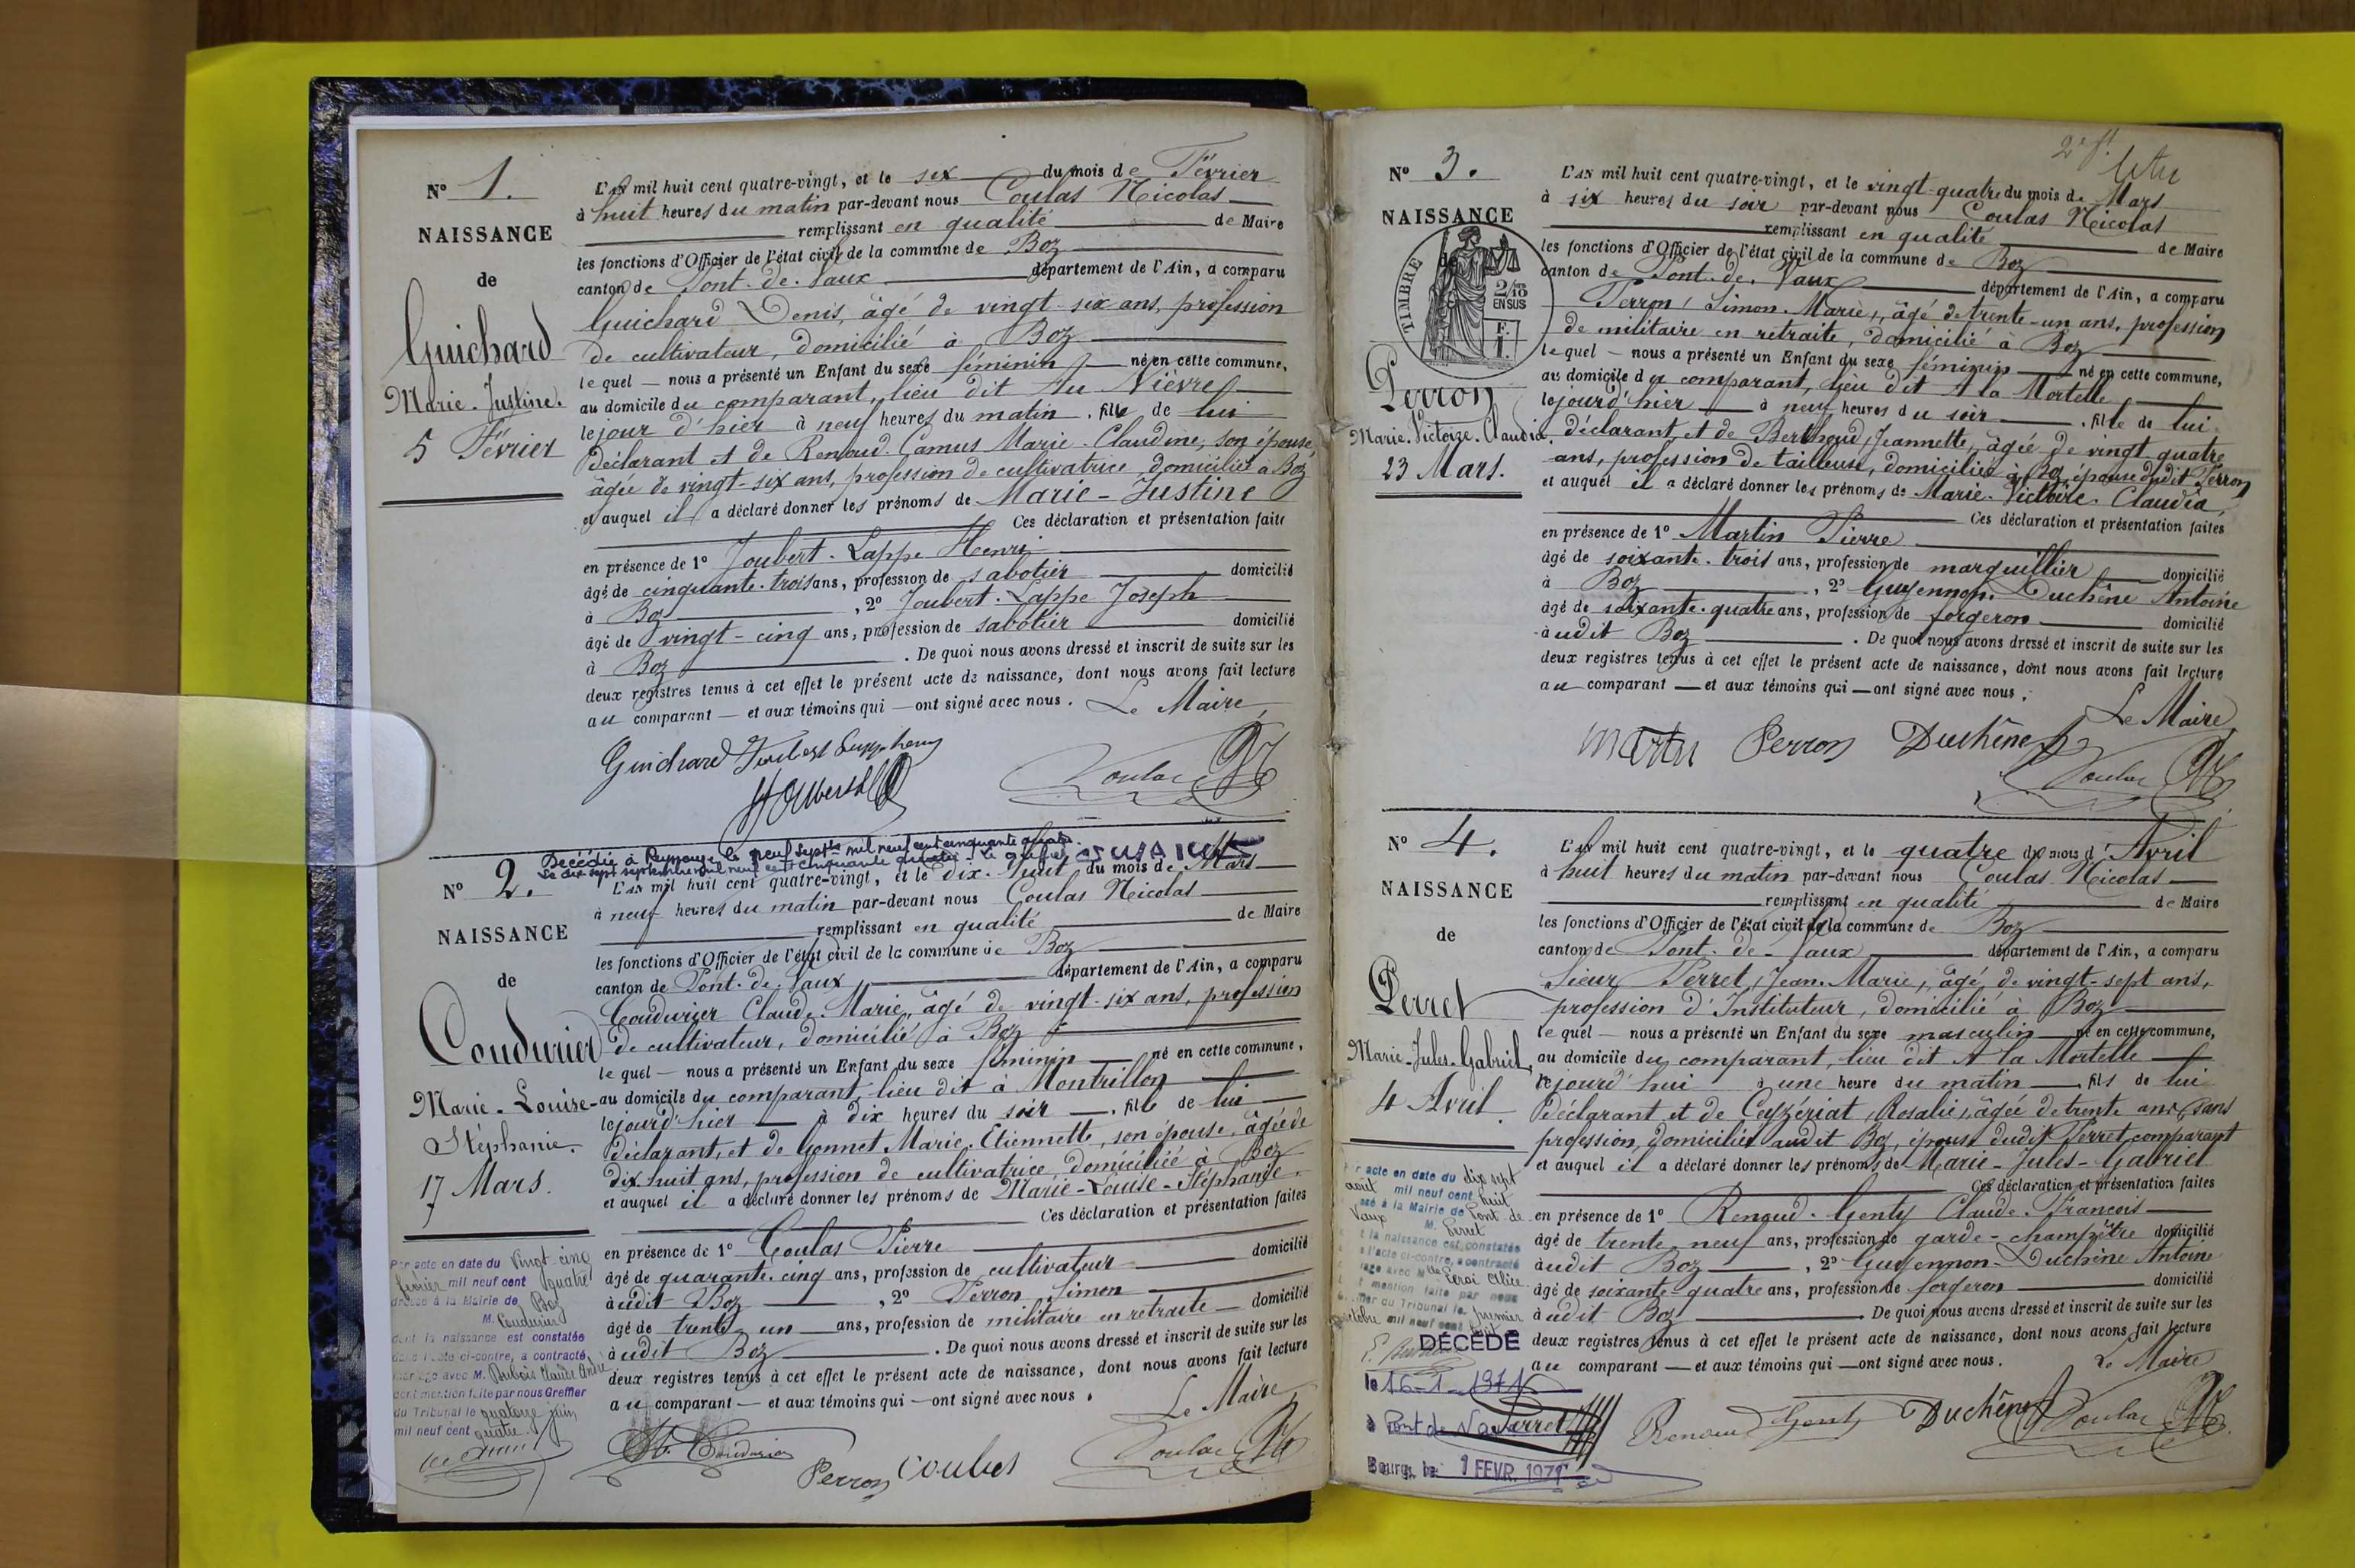 N° 1.
NAISSANCE
de
Guichard
Marie-Justine.
5 Février
L'an mil huit cent quatre-vingt, et le six du mois de Février
à huit heures du matin par-devant nous Coulas Nicolas
remplissant en qualité de Maire
les fonctions d'Officier de l'état civil de la commune de Boz
canton de Pont-de-Vaux département de l'Ain, a comparu
Guichard Denis, âgé de vingt-six ans, profession
de cultivateur, domicilié à Boz
lequel — nous a présenté un Enfant du sexe féminin né en cette commune,
au domicile du comparant, lieu dit Au Nièvre
le jour d'hier à neuf heures du matin, fille de lui
déclarant et de Renoud-Camus Marie-Claudine, son épouse,
âgée de vingt-six ans, profession de cultivatrice, domiciliée à Boz
et auquel il a déclaré donner les prénoms de Marie-Justine
Ces déclaration et présentation faites
en présence de 1° Joubert-Lappe Henri
âgé de cinquante-trois ans, profession de sabotier domicilié
à Boz, 2° Joubert-Lappe Joseph
âgé de vingt-cinq ans, profession de sabotier domicilié
à Boz. De quoi nous avons dressé et inscrit de suite sur les
deux registres tenus à cet effet le présent acte de naissance, dont nous avons fait lecture
au comparant — et aux témoins qui — ont signé avec nous. Le Maire,
Guichard Joubert Lapphenry
Coulas
Décédée à Reyssouze le neuf septbre mil neuf cent cinquante quatre.
Le dix sept septembre mil neuf cent cinquante quatre - Le greffier
N° 2.
NAISSANCE
de
Coudurier
Marie-Louise-
Stéphanie.
17 Mars.
L'an mil huit cent quatre-vingt, et le dix-huit du mois de Mars
à neuf heures du matin par-devant nous Coulas Nicolas
remplissant en qualité de Maire
les fonctions d'Officier de l'état civil de la commune de Boz
canton de Pont-de-Vaux département de l'Ain, a comparu
Coudurier Claude-Marie, âgé de vingt-six ans, profession
de cultivateur, domicilié à Boz
lequel — nous a présenté un Enfant du sexe féminin né en cette commune,
au domicile du comparant, lieu dit à Montrillon
le jourd'hier à dix heures du soir, fille de lui
déclarant, et de Gonnet Marie-Etiennette, son épouse, âgée de
dix-huit ans, profession de cultivatrice, domiciliée à Boz
et auquel il a déclaré donner les prénoms de Marie-Louise-Stéphanie.
Ces déclaration et présentation faites
en présence de 1° Coulas Pierre
âgé de quarante-cinq ans, profession de cultivateur domicilié
audit Boz, 2° Perron Simon
âgé de trente-un ans, profession de militaire en retraite domicilié
audit Boz. De quoi nous avons dressé et inscrit de suite sur les
deux registres tenus à cet effet le présent acte de naissance, dont nous avons fait lecture
au comparant — et aux témoins qui — ont signé avec nous.
Le Maire,
Perron Coulas
Coulas
Par acte en date du vingt-cinq
février mil neuf cent quatre
dressé à la Mairie de Boz
M. Coudurier
dont la naissance est constatée
dans l'acte ci-contre, a contracté
mariage avec M. Dubois Claude André
dont mention faite par nous Greffier
du Tribunal le quatorze juin
mil neuf cent quatre.
N° 3.
NAISSANCE
de
TIMBRE
2/10
EN SUS
Perron
Marie-Victoire-Claudia.
23 Mars.
L'an mil huit cent quatre-vingt, et le vingt-quatre du mois de Mars
à six heures du soir par-devant nous Coulas Nicolas
remplissant en qualité de Maire
les fonctions d'Officier de l'état civil de la commune de Boz
canton de Pont-de-Vaux département de l'Ain, a comparu
Perron, Simon-Marie, âgé de trente-un ans, profession
de militaire en retraite, domicilié à Boz
lequel — nous a présenté un Enfant du sexe féminin né en cette commune,
au domicile du comparant, lieu dit A la Mortelle
le jourd'hier à neuf heures du soir, fille de lui
déclarant et de Berthoud, Jeannette, âgée de vingt-quatre
ans, profession de tailleuse, domiciliée à Boz, épouse dudit Perron
et auquel il a déclaré donner les prénoms de Marie-Victoire-Claudia,
Ces déclaration et présentation faites
en présence de 1° Martin Pierre
âgé de soixante-trois ans, profession de marguillier domicilié
à Boz, 2° Guyennon-Duchêne Antoine
âgé de soixante-quatre ans, profession de forgeron domicilié
audit Boz. De quoi nous avons dressé et inscrit de suite sur les
deux registres tenus à cet effet le présent acte de naissance, dont nous avons fait lecture
au comparant — et aux témoins qui — ont signé avec nous.
Le Maire,
Martin Perron Duchêne
Coulas
N° 4.
NAISSANCE
de
Perret
Marie-Jules-Gabriel,
4 Avril.
L'an mil huit cent quatre-vingt, et le quatre du mois d'Avril
à huit heures du matin par-devant nous Coulas Nicolas
remplissant en qualité de Maire
les fonctions d'Officier de l'état civil de la commune de Boz
canton de Pont-de-Vaux département de l'Ain, a comparu
Sieur Perret, Jean-Marie, âgé de vingt-sept ans,
profession d'Instituteur, domicilié à Boz
lequel — nous a présenté un Enfant du sexe masculin né en cette commune,
au domicile du comparant, lieu dit A la Mortelle
le jourd'hui à une heure du matin, fils de lui
déclarant et de Ceyzériat, Rosalie, âgée de trente ans, sans
profession, domiciliée audit Boz, épouse dudit Perret, comparant
et auquel il a déclaré donner les prénoms de Marie-Jules-Gabriel
Ces déclaration et présentation faites
en présence de 1° Renoud-Genty Claude-François
âgé de trente-neuf ans, profession de garde-champêtre domicilié
audit Boz, 2° Guyennon-Duchêne Antoine
âgé de soixante-quatre ans, profession de forgeron domicilié
audit Boz. De quoi nous avons dressé et inscrit de suite sur les
deux registres tenus à cet effet le présent acte de naissance, dont nous avons fait lecture
au comparant — et aux témoins qui — ont signé avec nous.
Le Maire
Perret Renoud Genty Duchêne Coulas
acte en date du dix sept
août mil neuf cent huit
à la Mairie de Pont de
Vaux M. Perret
la naissance est constatée
l'acte ci-contre, a contracté
mention faite par nous
du Tribunal le premier
octobre mil neuf cent huit
DÉCÉDÉ
le 16-1-1971
à Pont de Vaux
Bourg, le 1 FEVR. 1971